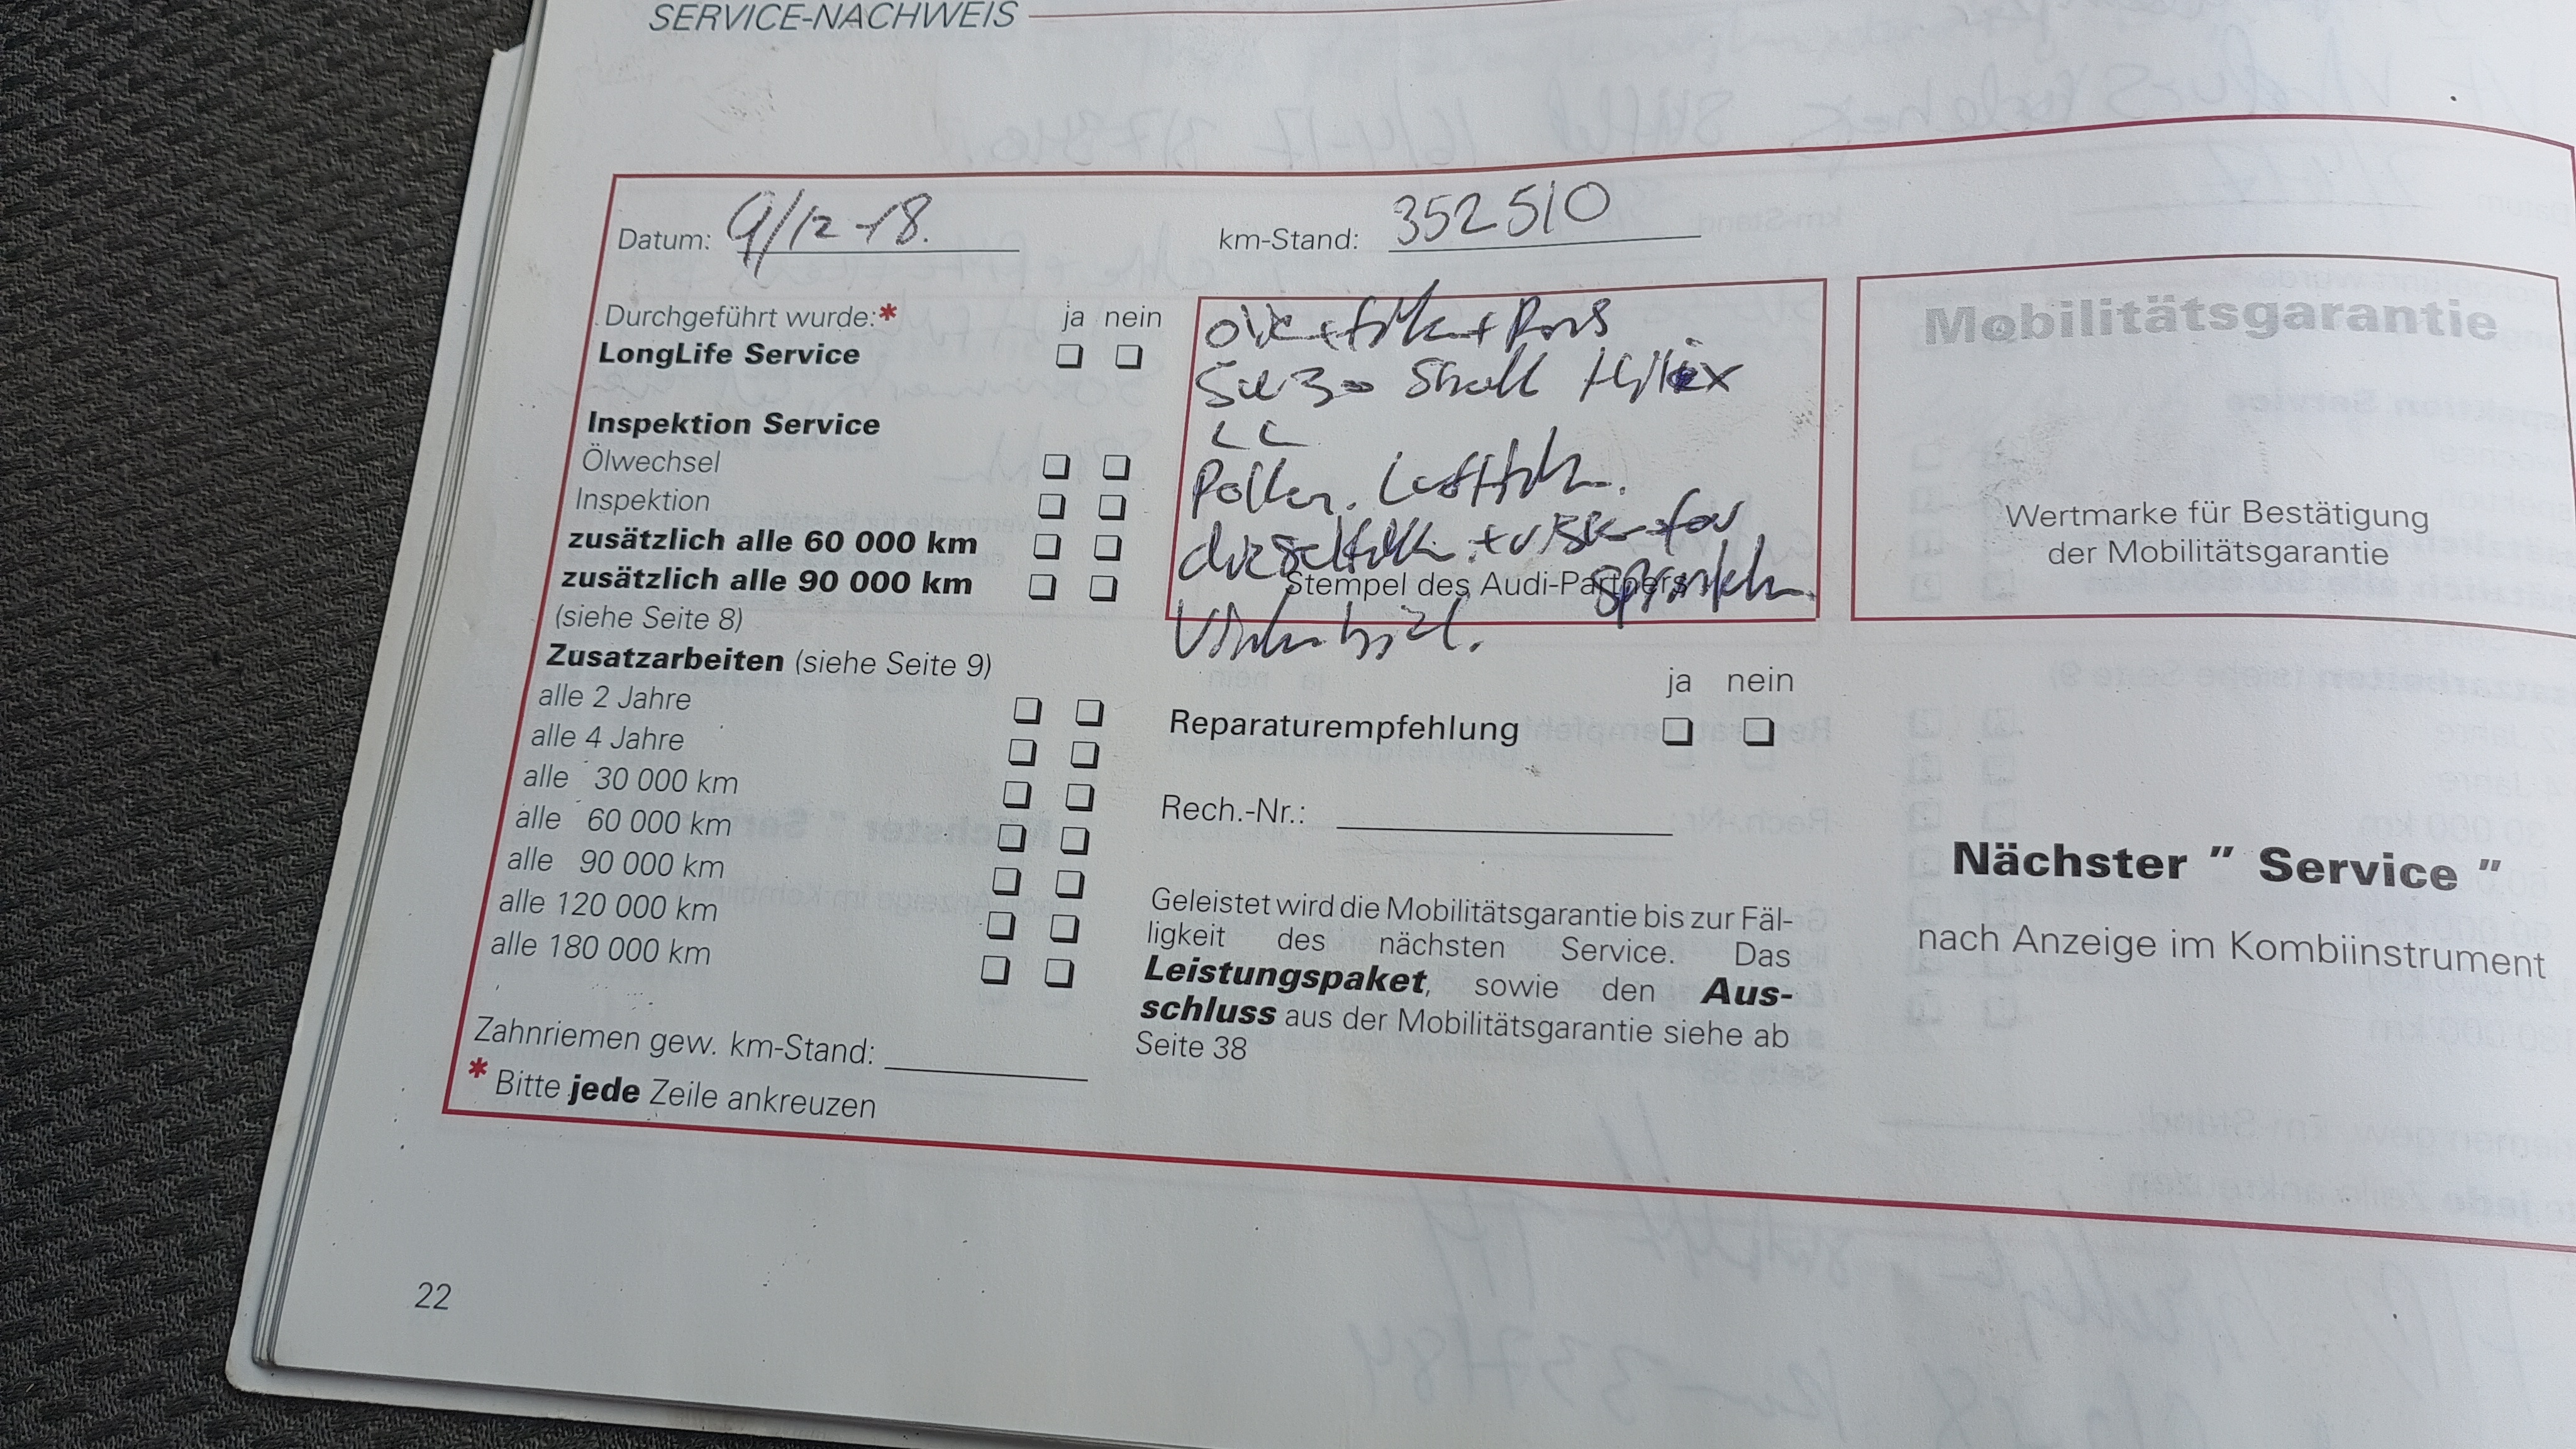 SERVICE-NACHWEIS
Datum: 9/12-18.
km-Stand: 352510
Durchgeführt wurde:* ja nein
LongLife Service
Inspektion Service
Ölwechsel
Inspektion
zusätzlich alle 60 000 km
zusätzlich alle 90 000 km
(siehe Seite 8)
Zusatzarbeiten (siehe Seite 9)
alle 2 Jahre
alle 4 Jahre
alle 30 000 km
alle 60 000 km
alle 90 000 km
alle 120 000 km
alle 180 000 km
Zahnriemen gew. km-Stand:
* Bitte jede Zeile ankreuzen
5w30 Shell Helix
Pollen.
Stempel des Audi-Partners
ja nein
Reparaturempfehlung
Rech.-Nr.:
Geleistet wird die Mobilitätsgarantie bis zur Fäl-
ligkeit des nächsten Service. Das
Leistungspaket, sowie den Aus-
schluss aus der Mobilitätsgarantie siehe ab
Seite 38
Mobilitätsgarantie
Wertmarke für Bestätigung
der Mobilitätsgarantie
Nächster " Service "
nach Anzeige im Kombiinstrument
22